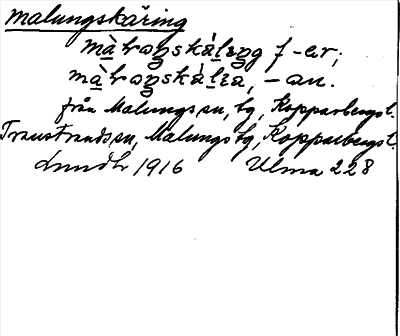 malungskäring
màḷroŋskáḷɪŋg f -er;
màḷroŋskáḷɪa, -an.
från Malungs sn, tg, Kopparbergs l.
Transtrands sn, Malungs tg, Kopparbergs l.
Lundh 1916 Ulma 228